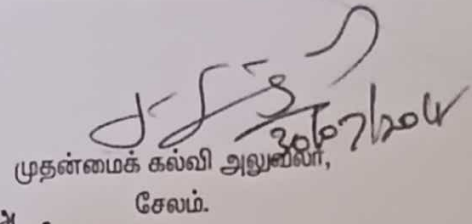 30/07/2024
முதன்மைக் கல்வி அலுவலர்,
சேலம்.